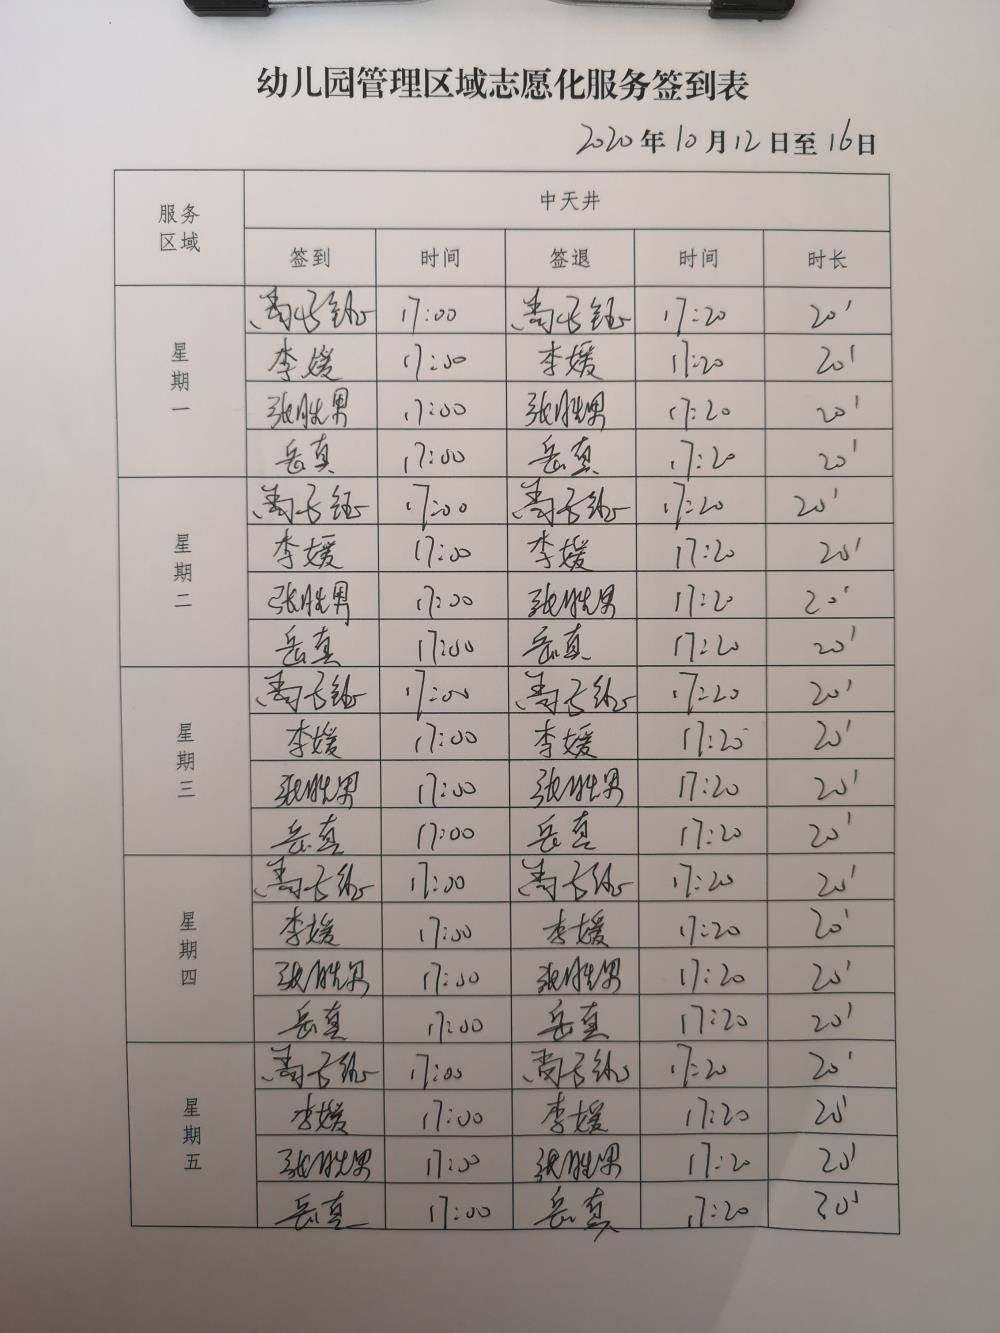 幼儿园管理区域志愿化服务签到表
2020年10月12日至16日
服务区域 中天井
签到 时间 签退 时间 时长
星期一
17:00 17:20 20'
李媛 17:00 李媛 17:20 20'
张胜男 17:00 张胜男 17:20 20'
岳真 17:00 岳真 17:20 20'
星期二
17:00 17:20 20'
李媛 17:00 李媛 17:20 20'
张胜男 17:00 张胜男 17:20 20'
岳真 17:00 岳真 17:20 20'
星期三
17:00 17:20 20'
李媛 17:00 李媛 17:20 20'
张胜男 17:00 张胜男 17:20 20'
岳真 17:00 岳真 17:20 20'
星期四
17:00 17:20 20'
李媛 17:00 李媛 17:20 20'
张胜男 17:00 张胜男 17:20 20'
岳真 17:00 岳真 17:20 20'
星期五
17:00 17:20 20'
李媛 17:00 李媛 17:20 20'
张胜男 17:00 张胜男 17:20 20'
岳真 17:00 岳真 17:20 20'